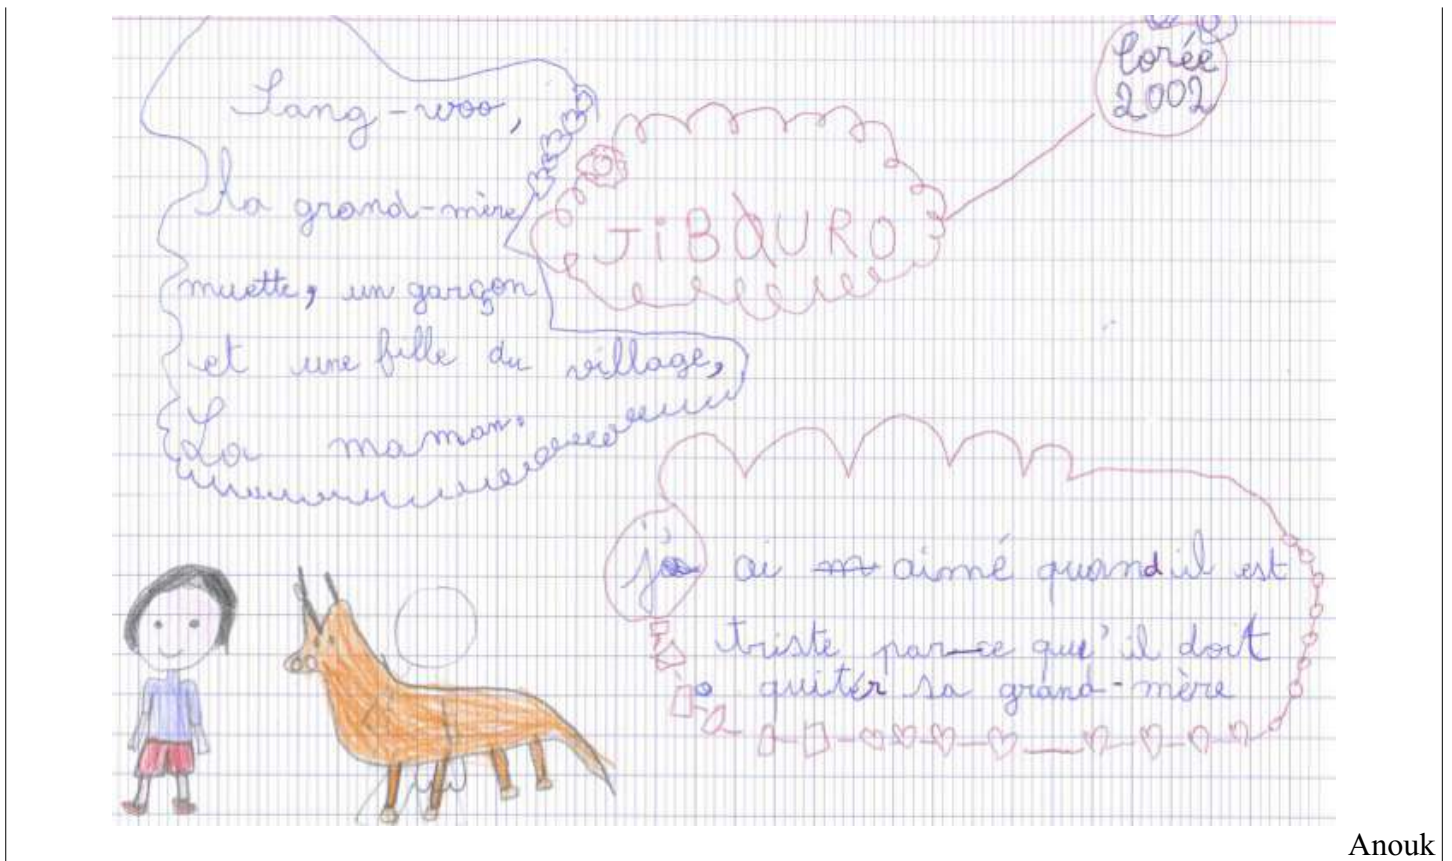 Sang-woo,
la grand-mère
muette, un garçon
et une fille du village,
La maman.
JiBURO
Corée
2002
j' ai aimé quand il est
triste par-ce que' il doit
quiter sa grand-mère
Anouk